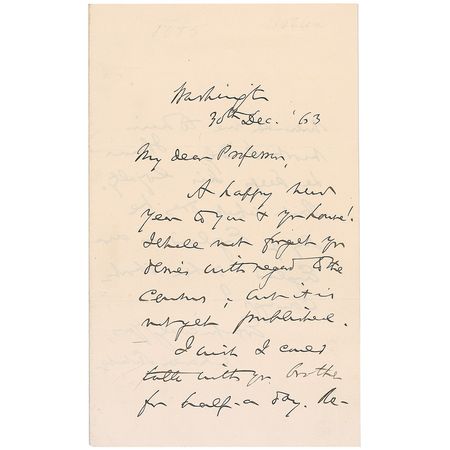 Washington
30th Dec. '63
My dear Professor,
A happy new
year to you & yr house!
I shall not forget yr
desires with regard to the
Census; but it is
not yet published.
I wish I could
talk with yr brother
for half-a day. Re-